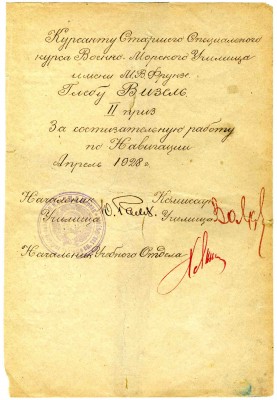 Курсанту Старшого Специального
курса Военно-Морского Училища
имени М.В. Фрунзе
Глебу Визель.
II приз
За состязательную работу
по Навигации
Апрель 1928 г.
Начальник Комиссар
Училища Училища
Начальник Учебного Отдела